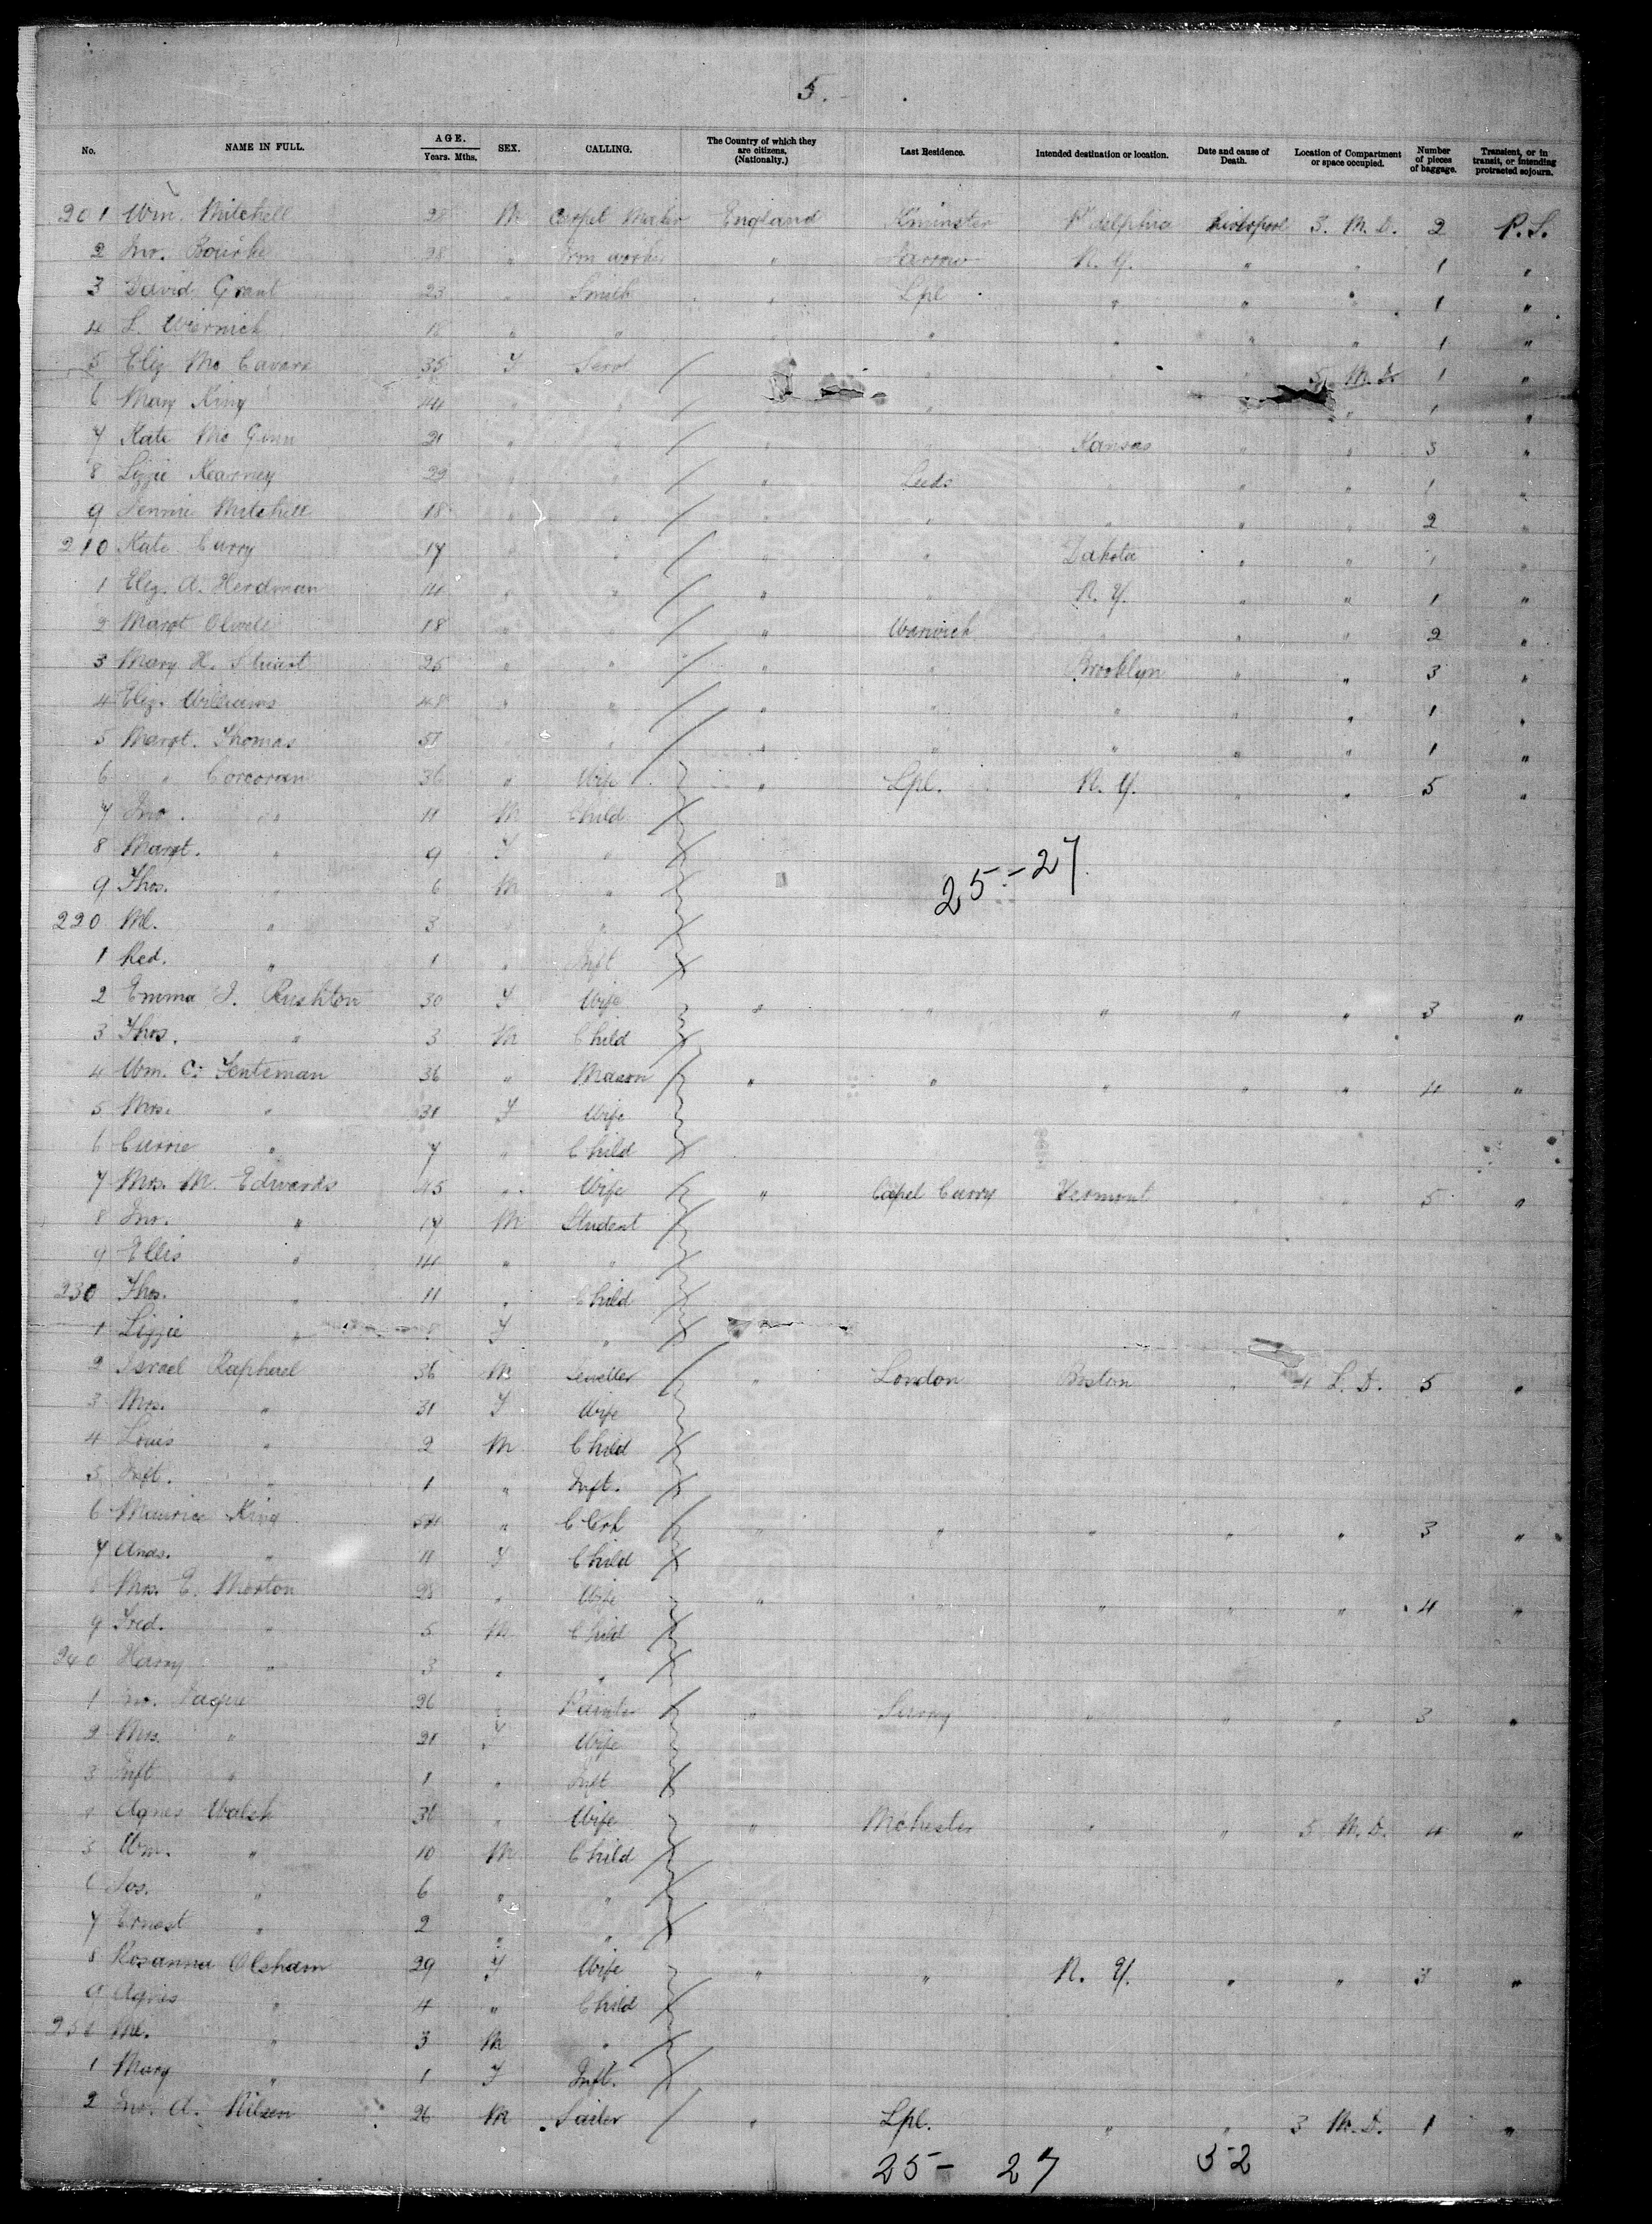 5.
No. NAME IN FULL. AGE. Years. Mths. SEX. CALLING. The Country of which they are citizens. (Nationality.) Last Residence. Intended destination or location. Date and cause of Death. Location of Compartment or space occupied. Number of pieces of baggage. Transient, or in transit, or intending protracted sojourn.
201 Wm. Mitchell M Carpet Maker England Kminster P'delphia Liverpool 3. M. D. 2 P.S.
2 Jno. Bourke 28 " Iron worker " Jarrow N. Y. " " 1 "
3 David Grant 23 " Smith " Lpl " " " 1 "
4 L. 18 " " " " " " " 1 "
5 Eliz Mc 35 F Servt " " " 5 M. D. 1 "
6 Mary King 44 " " " " " 1 "
7 Kate Mc Ginn 21 " " " " Kansas " " 3 "
8 Lizzie Kearney 29 " " Leeds " " " 1 "
9 Jennie Mitchell 18 " " " " " " " 2 "
210 Kate Curry 17 " " " " Dakota " " 1 "
1 Eliz. A. Herdman 14 " " " " N. Y. " " 1 "
2 Margt 18 " " " Warwick " " " 2 "
3 Mary H. Stuart 26 " " " " Brooklyn " " 3 "
4 Eliz. Williams 48 " " " " " " " 1 "
5 Margt. Thomas 51 " " " " " " " 1 "
6 " Corcoran 36 " Wife " Lpl. N. Y. " " 5 "
7 Jno. " 11 M Child
8 Margt. " 9 F "
9 Thos. " 6 M "
25 - 27
220 Ml. " 3 " "
1 Red. " 1 " Inft
2 Emma J. Rushton 30 F Wife " " " " " 3 "
3 Thos. " 3 M Child
4 Wm. C. Tenteman 36 " Mason " " " " " 4 "
5 Mrs. " 31 F Wife
6 Carrie " 7 " Child
7 Mrs. M. Edwards 45 " Wife " Capel Curry Vermont " " 5 "
8 Jno. " 17 M Student
9 Ellis " 14 " "
230 Thos. " 11 " Child
1 Lizzie " 8 F "
2 Israel Raphael 36 M Jeweller " London Boston " 4 L. D. 5 "
3 Mrs. " 31 F Wife
4 Louis " 2 M Child
5 Inft. " 1 " Inft.
6 Maurice King 54 " Clerk " " " " " 3 "
7 " 11 F Child
8 Mrs. E. Morton 28 " Wife " " " " " 4 "
9 Fred. " 5 M Child
240 Harry " 3 " "
1 Jno. 26 " Painter " Surrey " " " 3 "
2 Mrs. " 21 F Wife
3 Inft " 1 " Inft
4 Agnes Walsh " Wife " Mchester " " 5 M. D. 4 "
5 Wm. " 10 M Child
6 Jos. " 6 " "
7 Ernest " 2 " "
8 Rosanna Olsham 29 F Wife " " N. Y. " " 3 "
9 Agnes " 4 " Child
250 Ml. " 3 M "
1 Mary " 1 F Inft.
2 Jno. A. Nilsen 26 M Sailor " Lpl. " " 3 M. D. 1 "
25 - 27 52